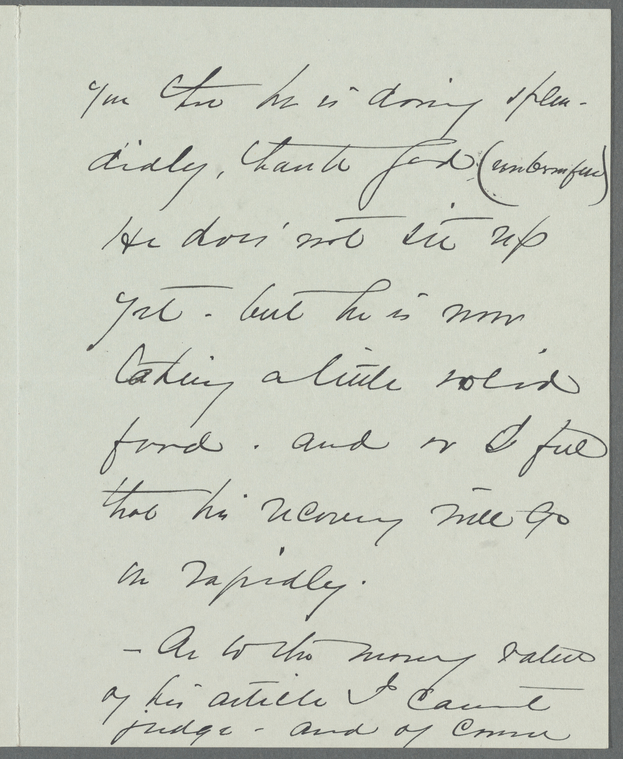 you that he is doing splen-
didly, thank God
He does not sit up
yet - but he is now
taking a little solid
food. and so I feel
that his recovery will go
on rapidly.
- As to the money value
of his article I cannot
judge - and of course